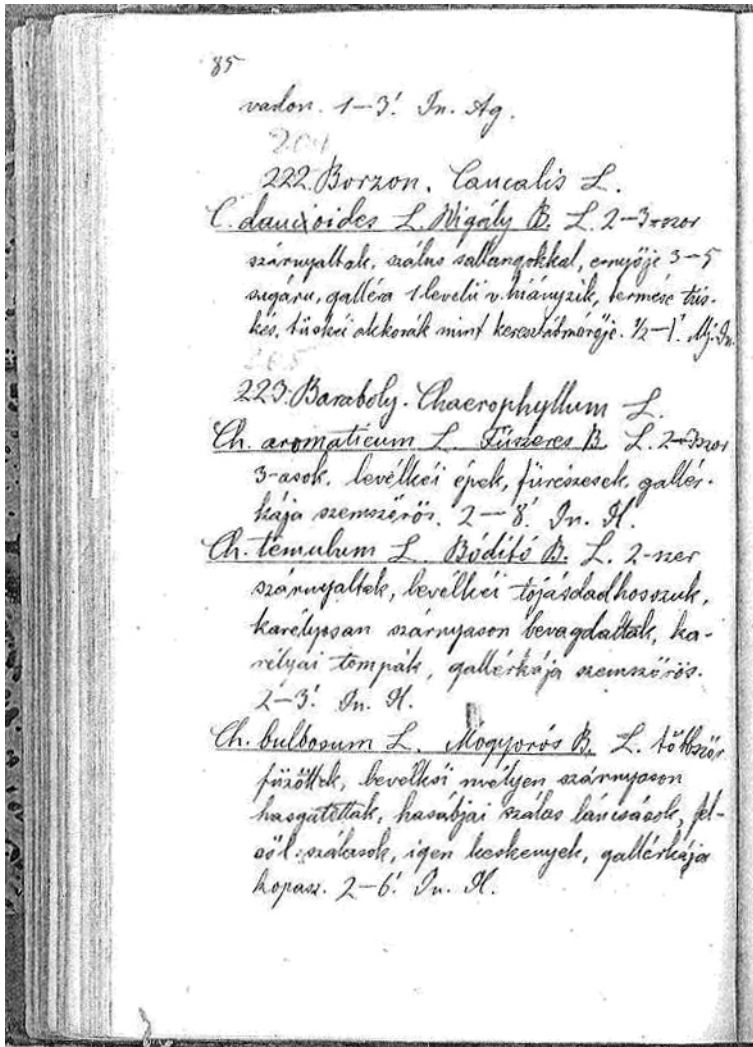 85
vadon. 1–3'. Jn. Ag.
204
222. Borzon. Caucalis L.
C. daucoides L. Nigály B. L. 2–3-szor
szárnyaltak, szálus sallangokkal, ernyője 3–5
sugáru, galléra 1 levelü v. hiányzik, termése tüs-
kés, tüskéi akkorák mint keresztátmérője. ½–1'. Mj. Jn.
205
223. Baraboly. Chaerophyllum L.
Ch. aromaticum L. Fűszeres B. L. 2–3szor
3-asok, levélkéi épek, fürészesek, gallér-
kája szemszőrös. 2–8'. Jn. Jl.
Ch. temulum L. Bódító B. L. 2-szer
szárnyaltak, levélkéi tojásdadhosszuk,
karélyosan szárnyason bevagdaltak, ka-
rélyai tompák, gallérkája szemszőrös.
2–3'. Jn. Jl.
Ch. bulbosum L. Mogyorós B. L. többször
füzöttek, levelkéi mélyen szárnyason
hasgatottak, hasábjai szálas láncsások, fel-
ső szálasok, igen keskenyek, gallérkája
kopasz. 2–6'. Jn. Jl.